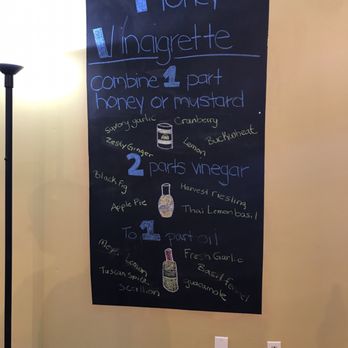 Honey
Vinaigrette
combine 1 part
honey or mustard
savory garlic Cranberry
Zesty Ginger Lemon Buckwheat
2 parts vinegar
Black fig Harvest riesling
Apple Pie Thai Lemon basil
To 1 part oil
Fresh Garlic
Tuscan Spice
Scallion guacamole